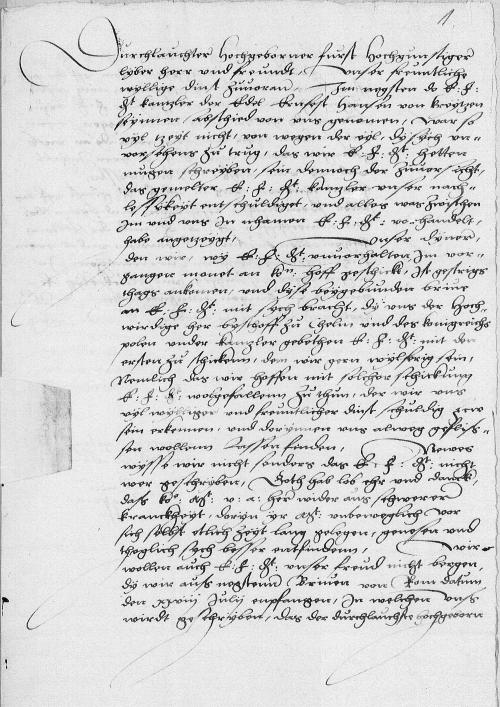 1.
Durchlauchter Hochgeborner furst Hochgunstiger
lyber herr und freundt, Unser freuntliche
wyllige dinst zuvoran, Im negsten do E: F:
Gt kantzler der Edel Ernfest Hansen von kreytzen
seynnen abschied von uns genomen, War so
vyl tzeyt nicht, von wegen der eyl, dy sych un=
vorsehens zu trug, das wir E: F: Gt: hetten
mugen schreyben, sein dennoch der zuvorsicht,
das gemelter E: F: Gt: kantzler unser nach=
lessykeyt entschuldiget, und alles was zwischen
Im und uns In nhamen E: F: Gt: vorhandelt,
habe angetzeygt, Unser dyner,
den wir, wy E: F: Gt: unvorhalten Im vor=
gangen monet an kn: hoff geschickt, Ist gestrigs
thags ankomen, und dyse beygebunden brive
an E: F: Gt: mit sych bracht, dy uns der Hoch=
wirdige her byschoff zu Chelm und des konigreichs
polen under kantzler gebothen E: F: Gt: mit den
ersten zu schicken, dem wir gern
Nemlich das wir hoffen mit solcher schickung
E: F: G: wolgefallenn zu thun, der wir uns
vyl wylliger und freuntlicher dinst schuldig
sein erkennen, und dorynnen uns alweg geflys=
sen wollenn lassen finden, Newes
wysse wir nicht sonders das E: F: Gt: nicht
wer geschryben, Goth hab lob ehr und danck,
dass ko: Mt: u: a: her wider aus schwerer
kranckheyt, doryn yr Mt: unbeweglich vor
sich selbst etlich zeyt lang gelegen, genesen und
thoglich sych besser entfindenn, Wir
wollen auch E: F: Gt: unser freud nicht bergen,
dy wir auss negsten briven von Rom datum
den xxviij Julij empfangen, In welchen uns
wirdt geschryben, das der durchlauchte hochgeborn